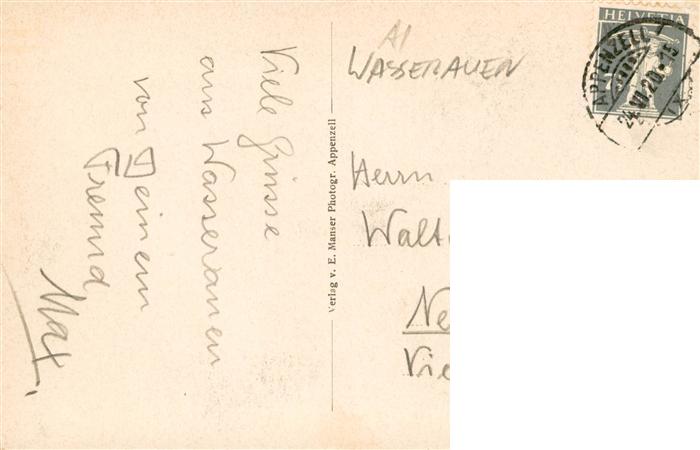 Viele Grüsse
aus Wasserauen
von Deinem
Freund
Max.
Verlag v. E. Manser Photogr. Appenzell
AI
WASSERAUEN
HELVETIA
APPENZELL
Herrn
Walt
Ne
Vie